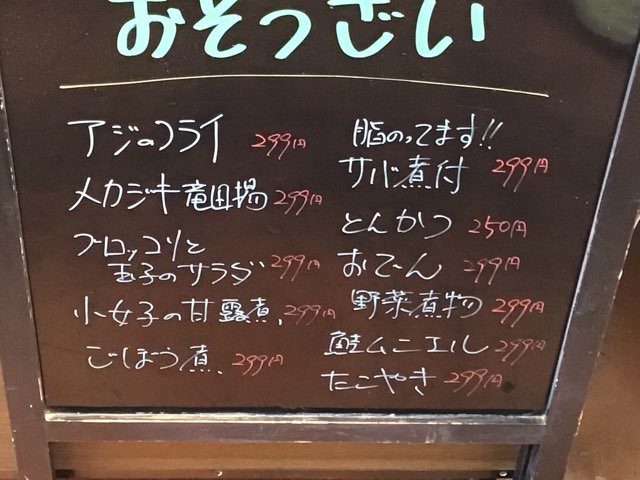 おそうざい
アジのフライ 299円
メカジキ竜田揚 299円
ブロッコリと
玉子のサラダ 299円
小女子の甘露煮 299円
ごぼう煮 299円
脂のってます!!
サバ煮付 299円
とんかつ 250円
おでん 299円
野菜煮物 299円
鮭ムニエル 299円
たこやき 299円